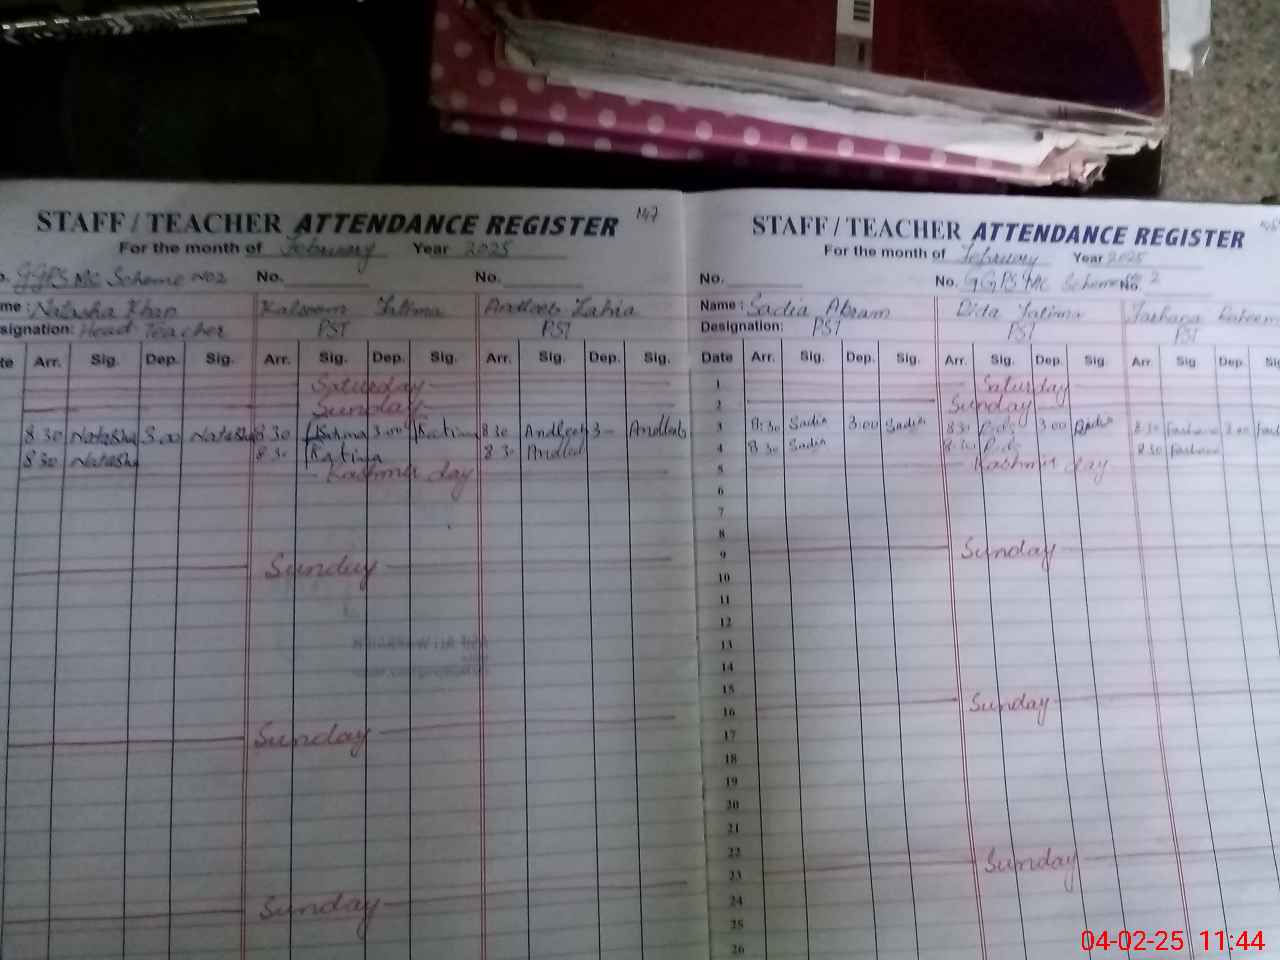 147
STAFF / TEACHER ATTENDANCE REGISTER
For the month of February Year 2025
GGPS MC Scheme No 2 No. No.
me: Natasha Khan Kalsoom Fatima Andleeb Zahra
signation: Head Teacher PST PST
te Arr. Sig. Dep. Sig. Arr. Sig. Dep. Sig. Arr. Sig. Dep. Sig.
Saturday
Sunday
8 30 Natasha 3.00 Natasha 8 30 Fatima 3.00 Fatima 8 30 Andleeb 3- Andleeb
8 30 Natasha 8 30 Fatima 8 30 Andleeb
Kashmir day
Sunday
Sunday
Sunday
STAFF / TEACHER ATTENDANCE REGISTER
For the month of February Year 2025
No. No. GGPS MC Scheme No. 2
Name: Sadia Akram Rida Fatima Farhana
Designation: PST PST PST
Date Arr. Sig. Dep. Sig. Arr. Sig. Dep. Sig. Arr. Sig Dep. Sig
1 Saturday
2 Sunday
3 8:30 Sadia 3:00 Sadia 8:30 Rida 3:00 Rida 8:30 Farhana 3:00
4 8:30 Sadia 8:30 Rida 8:30 Farhana
5 Kashmir day
6
7
8
9 Sunday
10
11
12
13
14
15
16 Sunday
17
18
19
20
21
22
23 Sunday
24
25
26
04-02-25 11:44